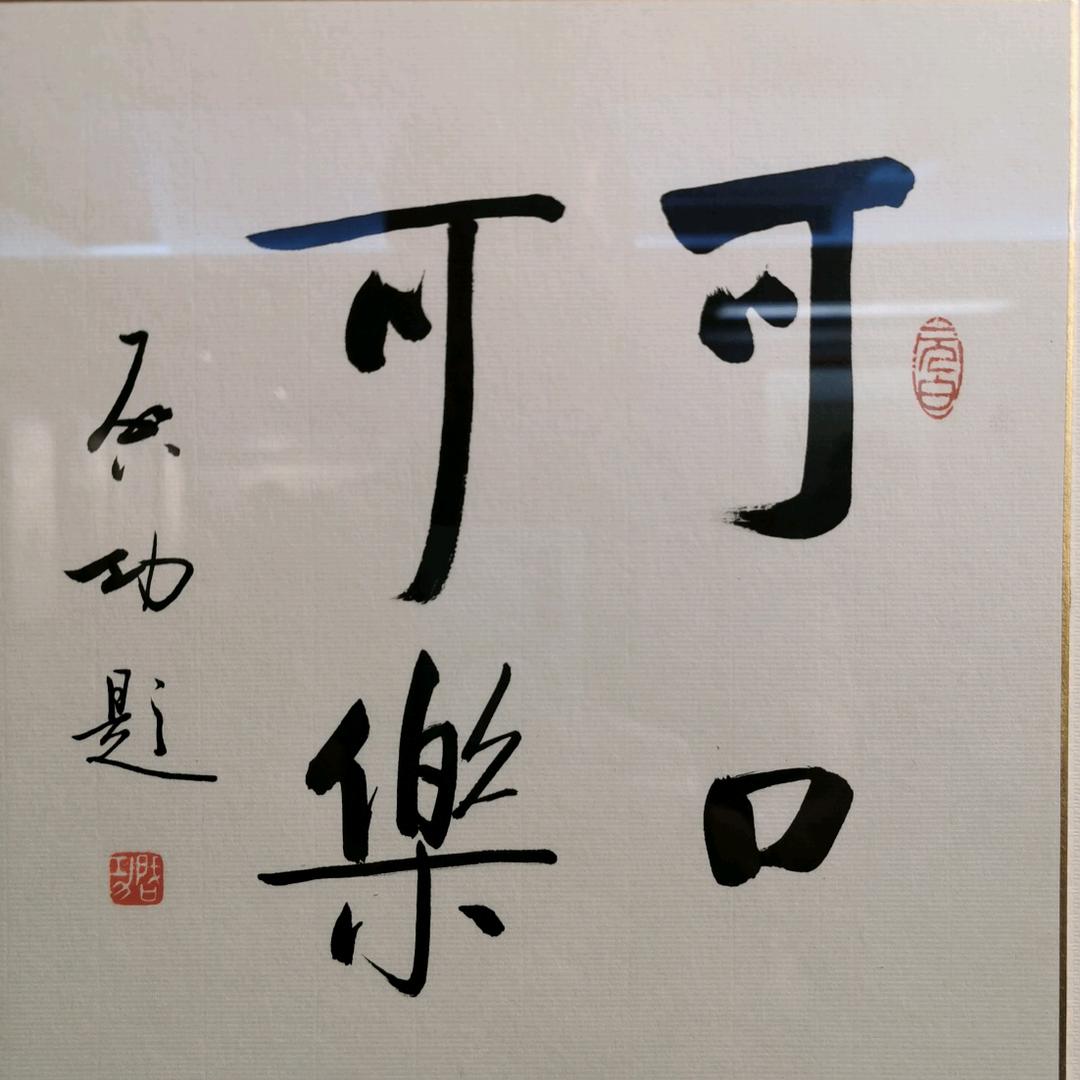 可口
可樂
启功題